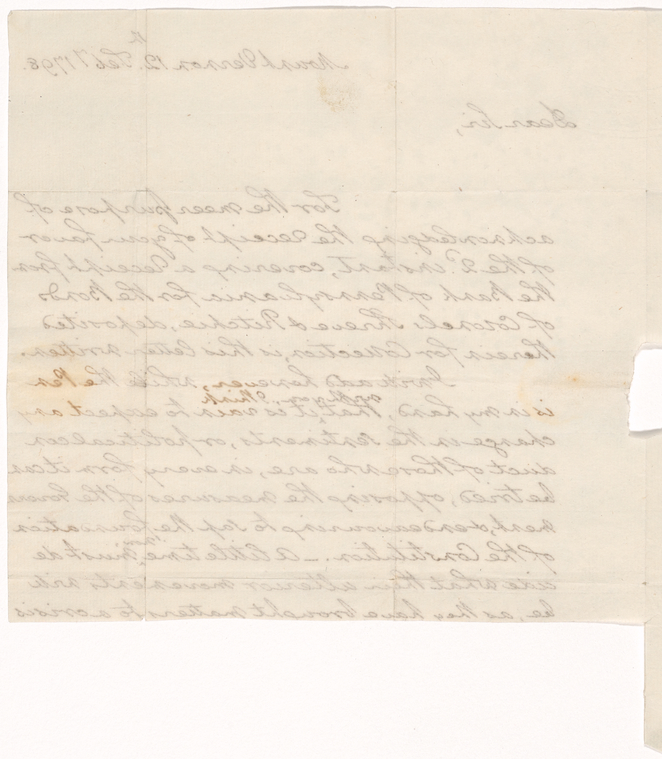 Mount Vernon 12th Feby 1798.
Dear Sir,
For the meer purpose of
acknowledging the receipt of your favor
of the 2d instant, covering a receipt from
the Bank of Pennsylvania for the Bonds
of Cornels. Shreve & Ritchie, deposited
therein for Collection, is this letter written.
I will add however, while the Pen
is in my hand, that, with you, I think it is vain to expect any
change in the sentiments, or political con
duct of those who are, in every form it can
be tried, opposing the measures of the Govern
ment, & endeavouring to sap the foundation
of the Constitution. – A little time must de
cide what their ulterior movements will
be, as they have brought matters to a crisis